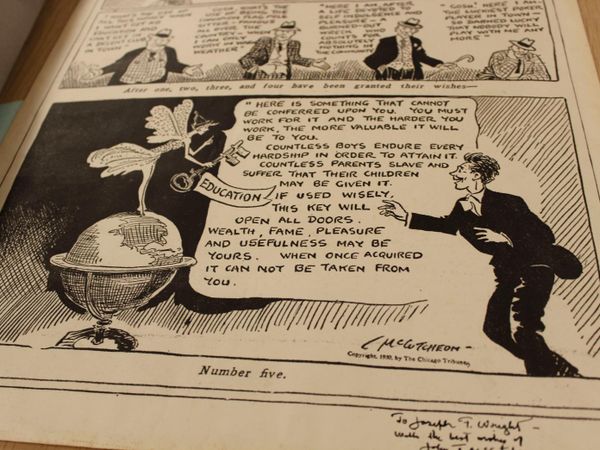 EDUCATION AND
TOWN
CHAMPION FLAG POLE
ALL OVER THE
WEATHER"
"HERE I AM, AFTER
A LIFE DEVOTED TO
SELF INDULGENCE
PLEASURE -
WRECK WHO
COUNTS FOR
ABSOLUTELY
NOTHING IN THE
COMMUNITY
"GOSH! HERE I AM
THE LUCKIEST
PLAYER IN TOWN
SO DARNED LUCKY
THAT NOBODY WILL
PLAY WITH ME ANY
MORE"
After one, two, three, and four have been granted their wishes—
"HERE IS SOMETHING THAT CANNOT
BE CONFERRED UPON YOU. YOU MUST
WORK FOR IT AND THE HARDER YOU
WORK, THE MORE VALUABLE IT WILL
BE TO YOU.
COUNTLESS BOYS ENDURE EVERY
HARDSHIP IN ORDER TO ATTAIN IT.
COUNTLESS PARENTS SLAVE AND
SUFFER THAT THEIR CHILDREN
MAY BE GIVEN IT.
EDUCATION
IF USED WISELY,
THIS KEY WILL
OPEN ALL DOORS.
WEALTH, FAME, PLEASURE
AND USEFULNESS MAY BE
YOURS. WHEN ONCE ACQUIRED
IT CAN NOT BE TAKEN FROM
YOU.
McCUTCHEON-
Copyright, 1930, by The Chicago Tribune.
Number five.
To Joseph T. Wright -
with the best wishes of
John T.